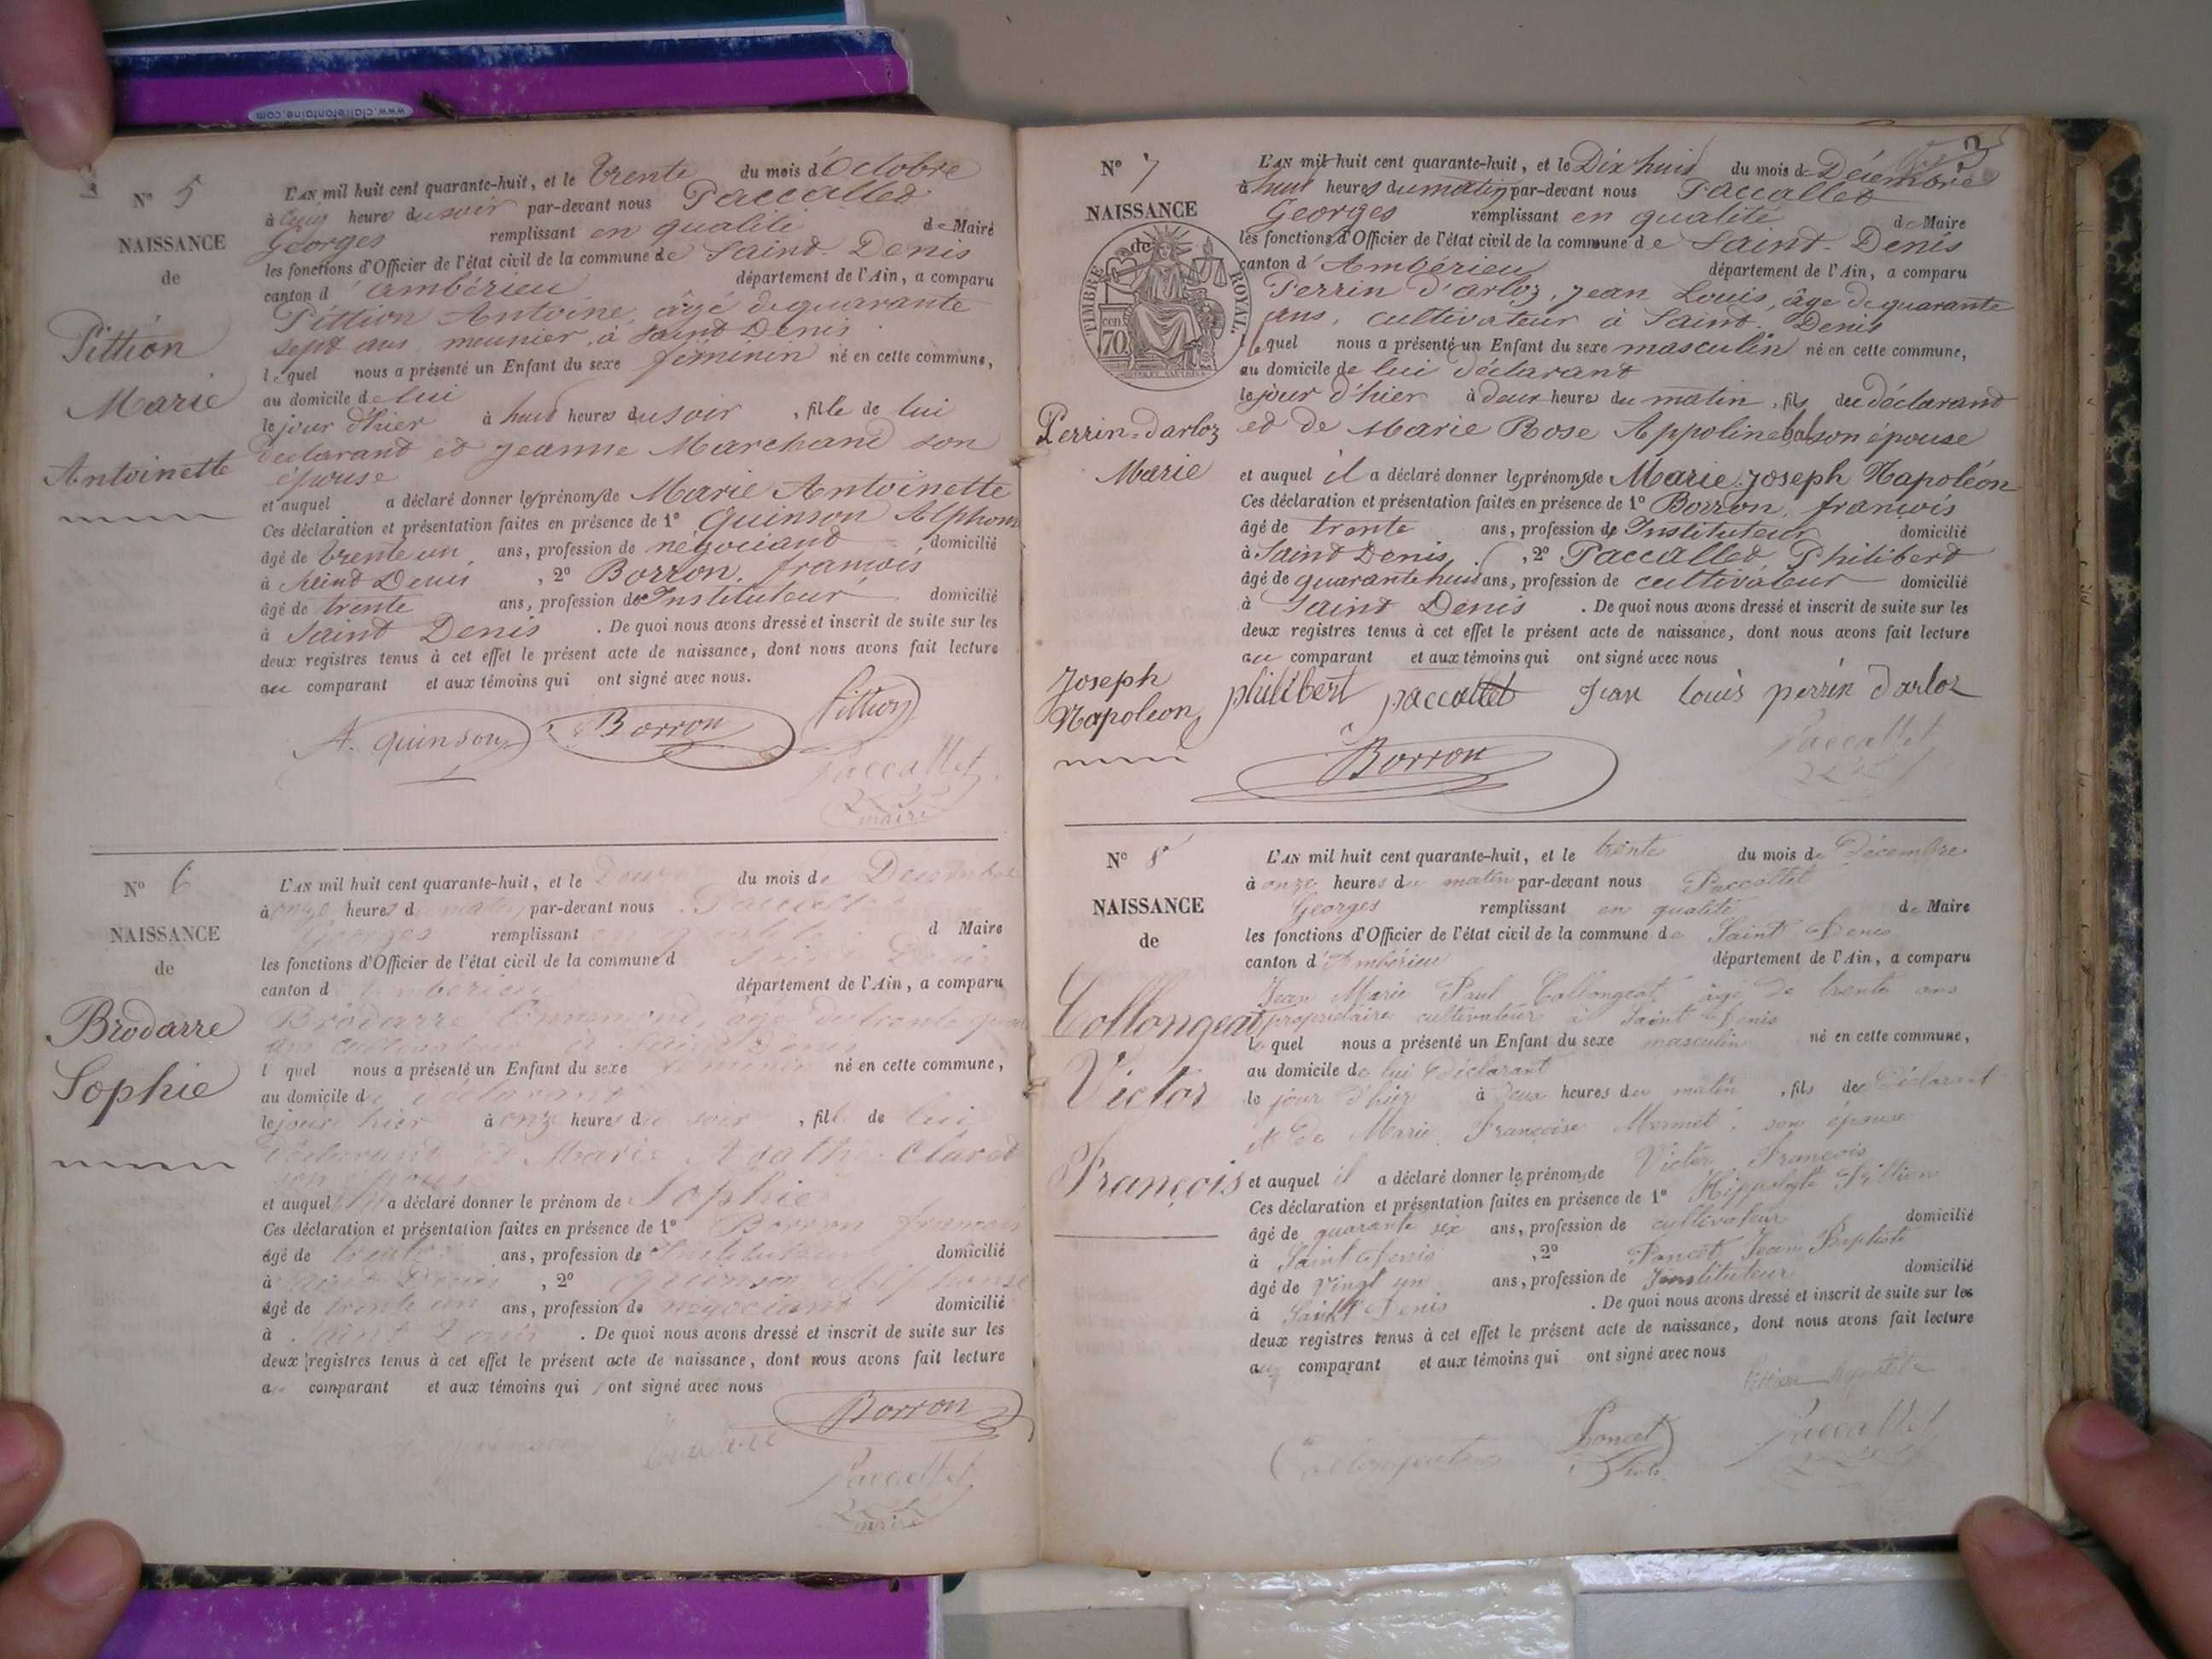 www.clairefontaine.com
Nº 5
NAISSANCE
de
Pittion
Marie
Antoinette
L'AN mil huit cent quarante-huit, et le trente du mois d'Octobre
à heure du soir par-devant nous Paccallet
Georges remplissant en qualité de Maire
les fonctions d'Officier de l'état civil de la commune de Saint-Denis
canton d'ambérieu département de l'Ain, a comparu
Pittion Antoine, âgé de quarante
sept ans, meunier, à Saint Denis
lequel nous a présenté un Enfant du sexe féminin né en cette commune,
au domicile de lui
le jour d'hier à huit heures du soir, fille de lui
déclarant et Jeanne Marchand son
épouse
et auquel a déclaré donner les prénoms de Marie Antoinette
Ces déclaration et présentation faites en présence de 1º Quinson Alphon
âgé de trente un ans, profession de négociant domicilié
à Saint Denis, 2º Borron, françois
âgé de trente ans, profession de Instituteur domicilié
à Saint Denis. De quoi nous avons dressé et inscrit de suite sur les
deux registres tenus à cet effet le présent acte de naissance, dont nous avons fait lecture
au comparant et aux témoins qui ont signé avec nous.
A. quinson Borron Pittion
Paccallet
maire
Nº 6
NAISSANCE
de
Brodarre
Sophie
L'AN mil huit cent quarante-huit, et le Douze du mois de Décembre
à onze heures du matin par-devant nous Paccallet
Georges remplissant en qualité d Maire
les fonctions d'Officier de l'état civil de la commune d Saint Denis
canton d ambérieu département de l'Ain, a comparu
Brodarré âgé de trente quatre
ans cultivateur à Saint Denis
l quel nous a présenté un Enfant du sexe féminin né en cette commune,
au domicile du déclarant
le jour hier à onze heures du soir, fille de lui
déclarant et Marie Agathe Claret
son épouse
et auquel il a déclaré donner le prénom de Sophie
Ces déclaration et présentation faites en présence de 1º Borron françois
âgé de trente ans, profession de Instituteur domicilié
à Saint Denis, 2º Quinson Alphonse
âgé de trente un ans, profession de négociant domicilié
à Saint Denis. De quoi nous avons dressé et inscrit de suite sur les
deux registres tenus à cet effet le présent acte de naissance, dont nous avons fait lecture
au comparant et aux témoins qui ont signé avec nous
Borron
quinson
Paccallet
maire
3
Nº 7
NAISSANCE
de
TIMBRE ROYAL.
70 cen
Perrin-darloz
Marie
Joseph
Napoléon
L'AN mil huit cent quarante-huit, et le Dix huit du mois de Décembre
à huit heures du matin par-devant nous Paccallet
Georges remplissant en qualité de Maire
les fonctions d'Officier de l'état civil de la commune de Saint-Denis
canton d'Ambérieu département de l'Ain, a comparu
Perrin d'arloz, Jean Louis, âgé de quarante
ans, cultivateur à Saint-Denis
lequel nous a présenté un Enfant du sexe masculin né en cette commune,
au domicile de lui déclarant
le jour d'hier à deux heures du matin, fils du déclarant
et de Marie Rose Appoline son épouse
et auquel il a déclaré donner les prénoms de Marie Joseph Napoléon
Ces déclaration et présentation faites en présence de 1º Borron, françois
âgé de trente ans, profession de Instituteur domicilié
à Saint Denis, 2º Paccallet Philibert
âgé de quarante huit ans, profession de cultivateur domicilié
à Saint Denis. De quoi nous avons dressé et inscrit de suite sur les
deux registres tenus à cet effet le présent acte de naissance, dont nous avons fait lecture
au comparant et aux témoins qui ont signé avec nous
philibert paccallet Jean louis perrin darloz
Borron Paccallet
Nº 8
NAISSANCE
de
Collongeat
Victor
François
L'AN mil huit cent quarante-huit, et le trente du mois de Décembre
à onze heures du matin par-devant nous Paccallet
Georges remplissant en qualité de Maire
les fonctions d'Officier de l'état civil de la commune de Saint Denis
canton d'Ambérieu département de l'Ain, a comparu
Jean Marie Paul Collongeat âgé de trente ans
propriétaire cultivateur à Saint Denis
lequel nous a présenté un Enfant du sexe masculin né en cette commune,
au domicile de lui déclarant
le jour d'hier à deux heures du matin, fils de Déclarant
et de Marie Françoise Mermet, son épouse
et auquel il a déclaré donner les prénoms de Victor François
Ces déclaration et présentation faites en présence de 1º Hippolyte Pittion
âgé de quarante six ans, profession de cultivateur domicilié
à Saint Denis, 2º Poncet Jean Baptiste
âgé de vingt un ans, profession de Instituteur domicilié
à Saint Denis. De quoi nous avons dressé et inscrit de suite sur les
deux registres tenus à cet effet le présent acte de naissance, dont nous avons fait lecture
au comparant et aux témoins qui ont signé avec nous
Poncet Paccallet